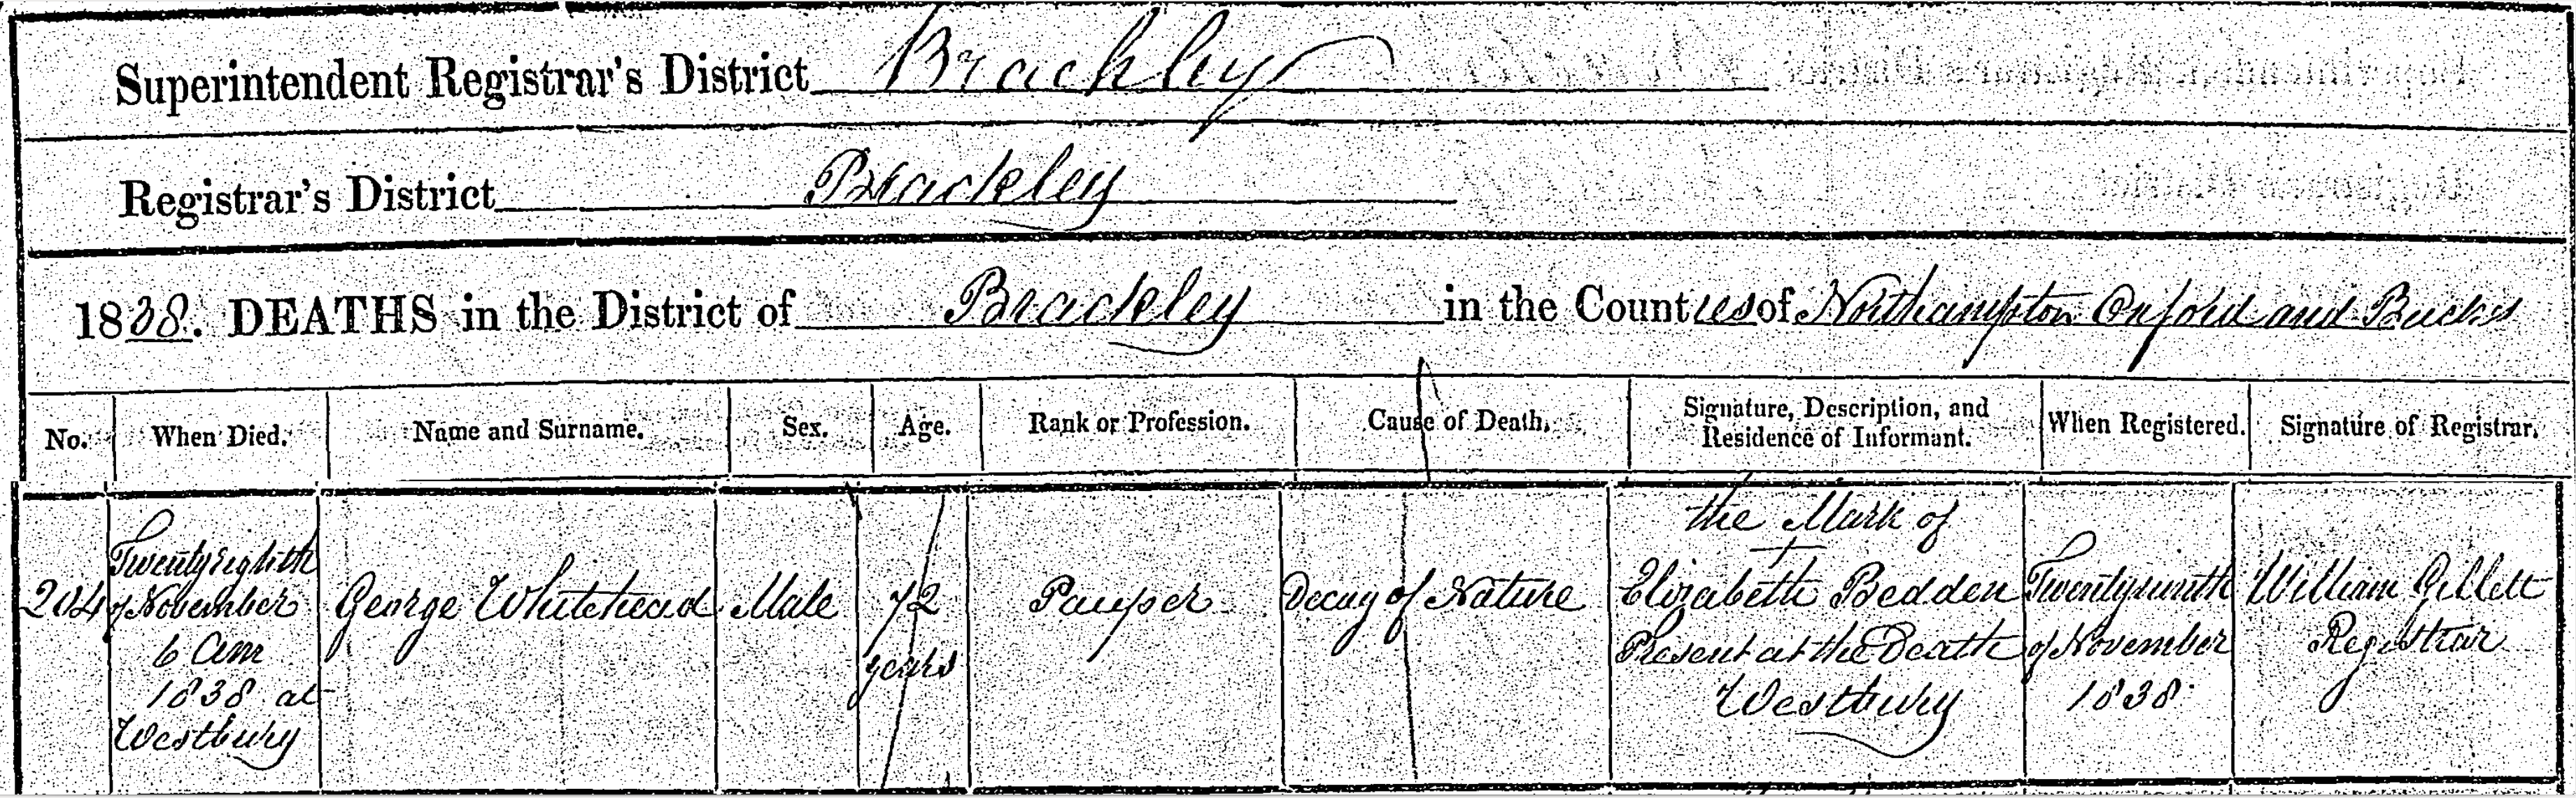 Superintendent Registrar's District Brackley
Registrar's District Brackley
1838. DEATHS in the District of Brackley in the Counties of Northampton Oxford and Bucks
No. When Died. Name and Surname. Sex. Age. Rank or Profession. Cause of Death. Signature, Description, and Residence of Informant. When Registered. Signature of Registrar.
204
Twentyeighth
of November
6 am
1838 at
Westbury
George Whitehead
Male
72
years
Pauper
Decay of Nature
the Mark of
Elizabeth Bedden
Present at the Death
Westbury
Twentyninth
of November
1838
William Gillett
Registrar